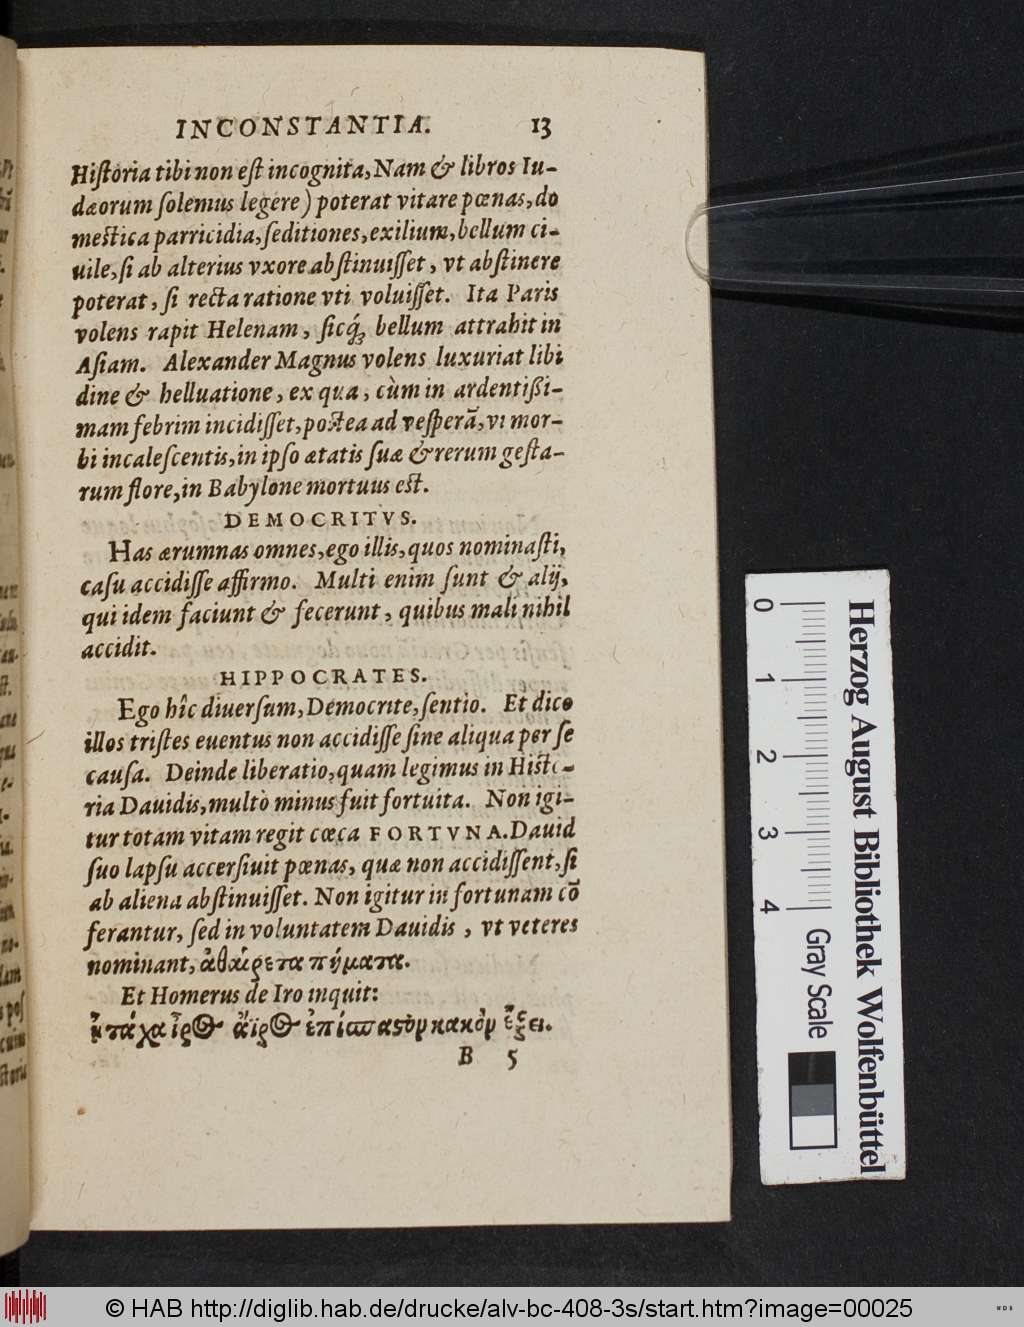 INCONSTANTIA. 13
Hiſtoria tibi non eſt incognita, Nam & libros Iu-
dæorum ſolemus legere) poterat vitare pœnas, do
meſtica parricidia, ſeditiones, exilium, bellum ci-
uile, ſi ab alterius vxore abſtinuiſſet, vt abſtinere
poterat, ſi recta ratione vti voluiſſet. Ita Paris
volens rapit Helenam, ſicq́ꝫ bellum attrahit in
Aſiam. Alexander Magnus volens luxuriat libi
dine & helluatione, ex qua, cùm in ardentißi-
mam febrim incidiſſet, poſtea ad veſperā, vi mor-
bi incaleſcentis, in ipſo ætatis ſuæ & rerum geſta-
rum flore, in Babylone mortuus eſt.
DEMOCRITVS.
Has ærumnas omnes, ego illis, quos nominaſti,
caſu accidiſſe affirmo. Multi enim ſunt & alij,
qui idem faciunt & fecerunt, quibus mali nihil
accidit.
HIPPOCRATES.
Ego hîc diuerſum, Democrite, ſentio. Et dico
illos triſtes euentus non accidiſſe ſine aliqua per ſe
cauſa. Deinde liberatio, quam legimus in Hiſto-
ria Dauidis, multò minus fuit fortuita. Non igi-
tur totam vitam regit cœca FORTVNA. Dauid
ſuo lapſu accerſiuit pœnas, quæ non accidiſſent, ſi
ab aliena abſtinuiſſet. Non igitur in fortunam cō
ferantur, ſed in voluntatem Dauidis, vt veteres
nominant, ἀθαίρετα πήματα.
Et Homerus de Iro inquit:
ἦ τάχα ἶρος ἄϊρος ἐπίσπαστον κακὸν ἕξει.
B 5
Herzog August Bibliothek Wolfenbüttel
0 1 2 3 4 Gray Scale
© HAB http://diglib.hab.de/drucke/alv-bc-408-3s/start.htm?image=00025